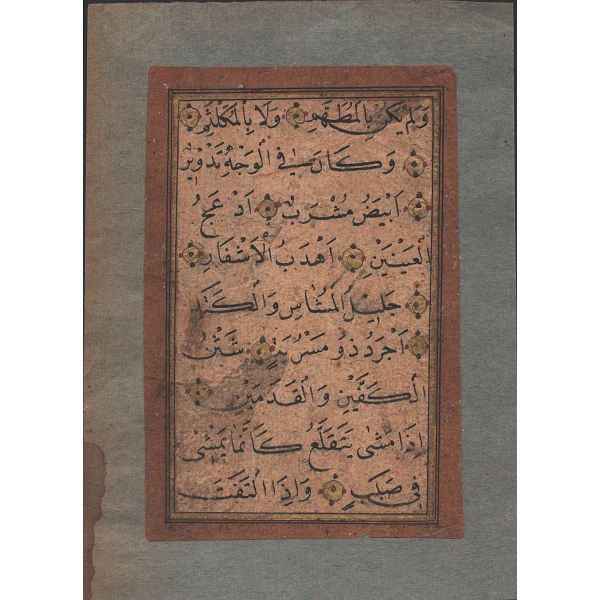 وَلَمْ يَكُنْ بِالْمُطَهَّمِ وَلَا بِالْمُكَلْثَمِ
وَكَانَ فِي الْوَجْهِ تَدْوِيرٌ
اَبْيَضُ مُشْرَبٌ اَدْعَجُ
الْعَيْنَيْنِ اَهْدَبُ الْاَشْفَارِ
جَلِيلُ الْمُشَاشِ وَالْكَتَدِ
اَجْرَدُ ذُو مَسْرُبَةٍ شَثْنُ
الْكَفَّيْنِ وَالْقَدَمَيْنِ
اِذَا مَشٰى يَتَقَلَّعُ كَاَنَّمَا يَمْشٖى
فِي صَبَبٍ وَاِذَا الْتَفَتَ